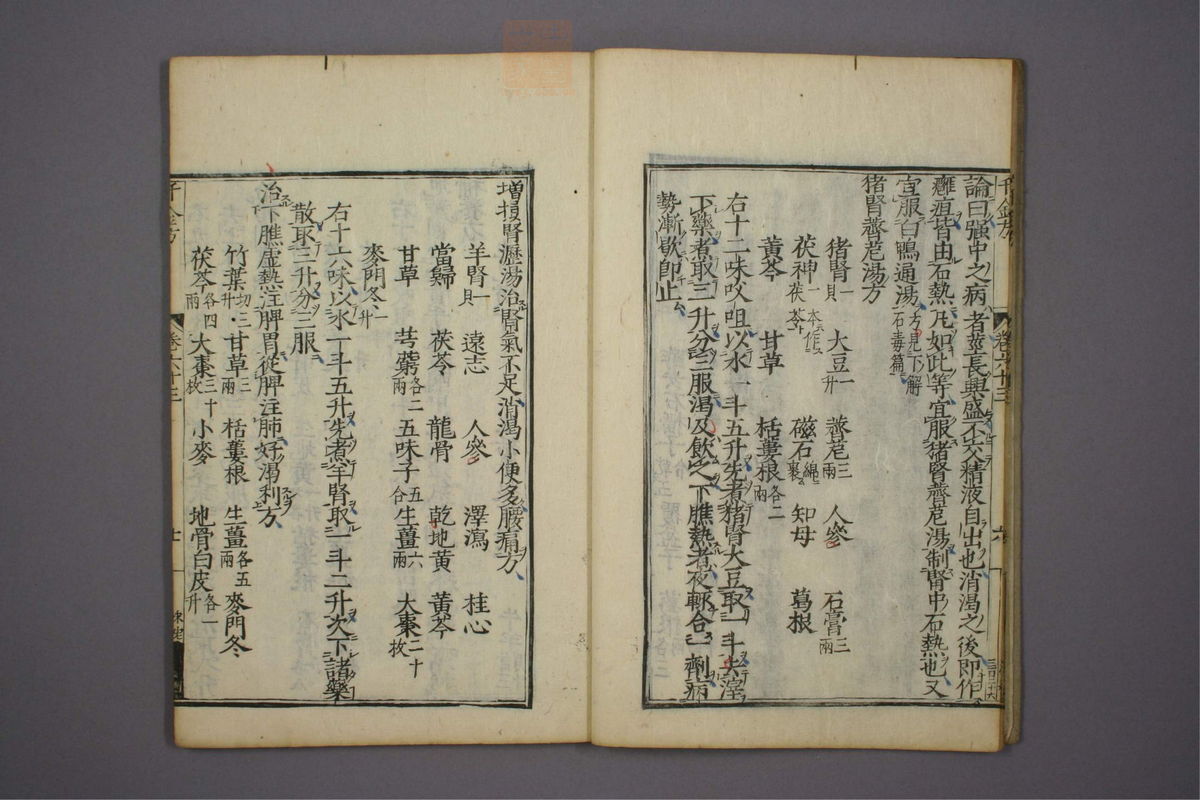 論曰强中之病者莖長興盛不交精液自出也消渴之後即作
癰疽皆由石熱凡如此等宜服猪腎薺苨湯制腎中石熱也又
宜服白鴨通湯方見下解石毒篇
猪腎薺苨湯方
猪腎一具 大豆一升 薺苨三兩 人參 石膏三兩
茯神一本作茯苓 磁石綿裹 知母 葛根
黃芩 甘草 栝蔞根各二兩
右十二味㕮咀以水一斗五升先煮猪腎大豆取一斗去滓
下藥煮取三升分三服渴及飲之下膲熱者夜輒合一劑病
勢漸歇即止
增損腎瀝湯治腎氣不足消渴小便多腰痛方
羊腎一具 遠志 人參 澤瀉 桂心
當歸 茯苓 龍骨 乾地黃 黃芩
甘草 芎藭各二兩 五味子五合 生薑六兩 大棗二十枚
麥門冬一升
右十六味以水一斗五升先煮羊腎取一斗二升次下諸藥
散取三升分三服
治下膲虛熱注脾胃從脾注肺好渴利方
竹葉切三升 甘草三兩 栝蔞根 生薑各五兩 麥門冬
茯苓各四兩 大棗三十枚 小麥 地骨白皮各一升
千金方 卷六十三